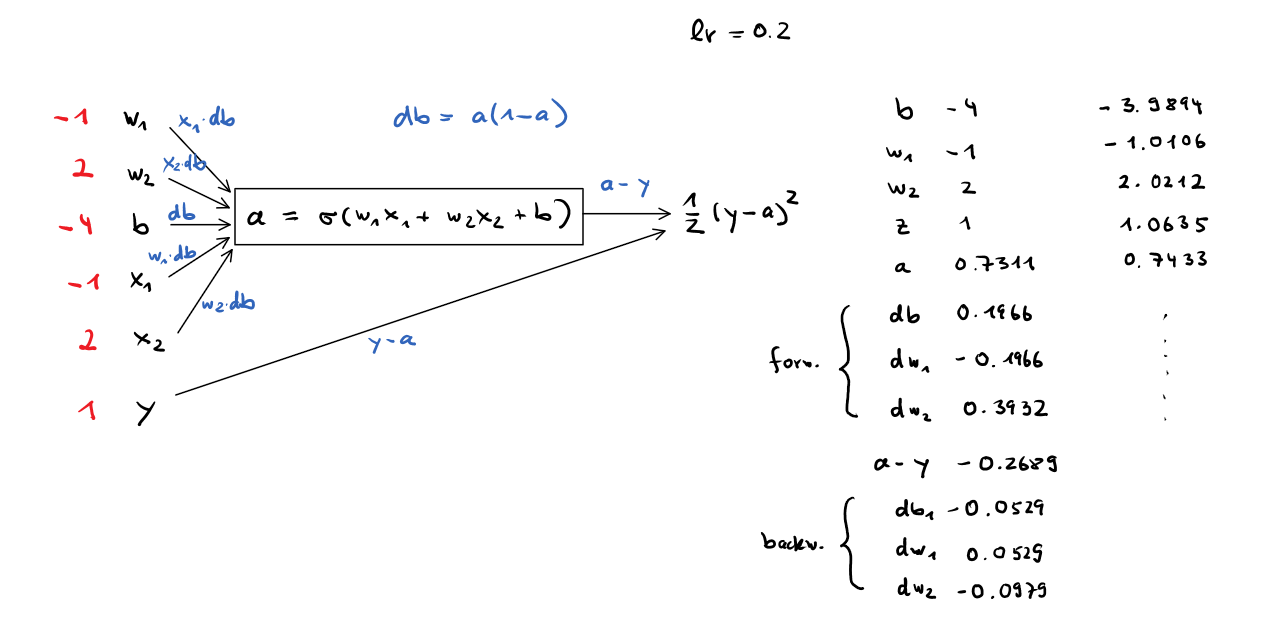 lr = 0.2
-1 w₁ x₁·db
db = a(1-a)
2 w₂ x₂·db
-4 b db
a = σ(w₁x₁ + w₂x₂ + b)
a - y
½ (y-a)²
-1 x₁ w₁·db
2 x₂ w₂·db
y-a
1 y
b -4 -3.9894
w₁ -1 -1.0106
w₂ 2 2.0212
z 1 1.0635
a 0.7311 0.7433
forw.
db 0.1966
dw₁ -0.1966
dw₂ 0.3932
a-y -0.2689
backw.
db₁ -0.0529
dw₁ 0.0529
dw₂ -0.0979